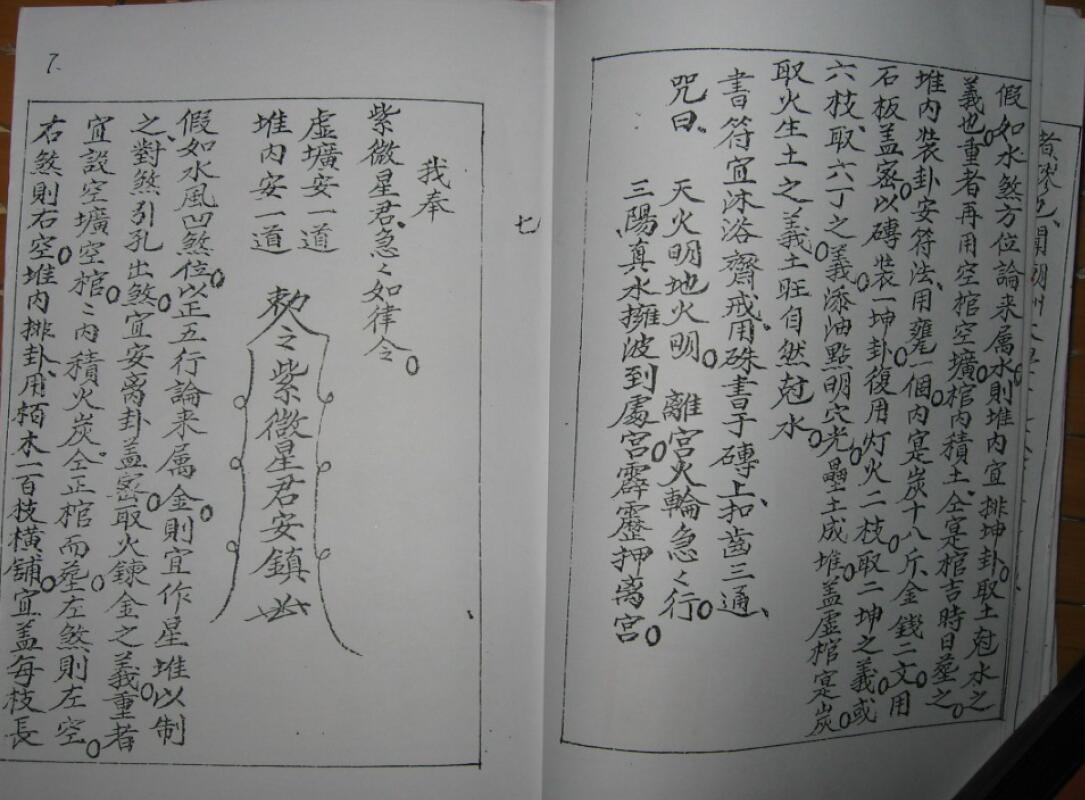 假如水煞方位論来属水則堆内宜排坤卦取土尅水之
義也重者再用空棺空壙棺内積土仝寔棺吉時日塟之
堆内装卦安符法用甕一個内寔炭十八斤金錢二文用
石板盖密以磚装一坤卦復用灯火二枝取二坤之義或
六枝取六丁之義添油點明穴光壘土成堆盖虚棺寔炭
取火生土之義土旺自然尅水
書符宜沐浴齋戒用硃書于磚上扣齒三通
咒曰 天火明地火明 離宮火輪急々行
三陽真水擁波到處宮霹靂押离宮
七
我奉
紫微星君急々如律令
虚壙安一道
堆内安一道
勅令之紫微星君安鎮
假如水風凹煞位以正五行論来属金則宜作星堆以制
之對煞引孔出煞宜安离卦盖密取火鍊金之義重者
宜設空壙空棺々内積火炭仝正棺而塟左煞則左空
右煞則右空堆内排卦用栢木一百枝橫舖宜盖每枝長
7.